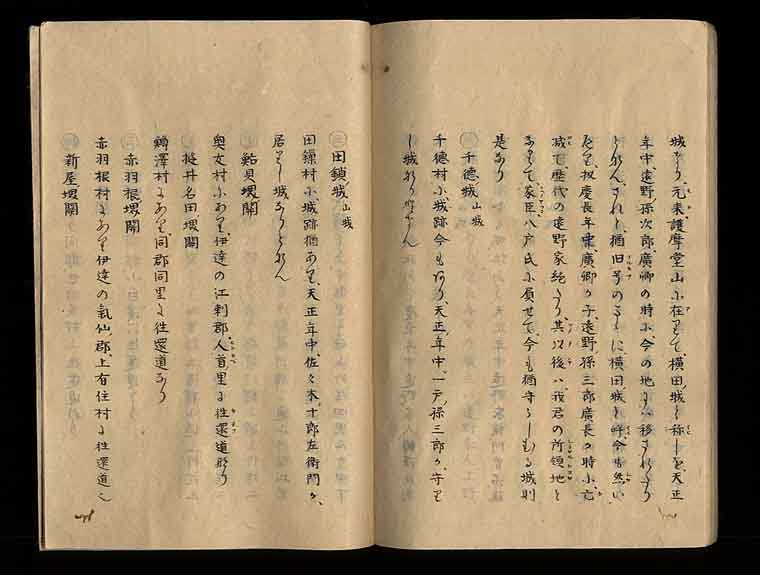 城なり元来護摩堂山に在りて横田城と称しを天正
年中遠野孫次郎廣卿の時に今の地に移されたり
されと猶旧号のまゝに横田城と呼今も然
扨慶長年東廣卿の子遠野孫三郎廣長の時に亡
滅て歴代の遠野家絶たり其以後ハ我君の所領地と
なりて家臣八戸氏に属せて今も猶守らしむる城則
是なり
千徳城 山城
千徳村に城跡今もあり天正年中一戸孫三郎か守り
し城なり
田鎖城 山城
田鎖村に城跡猶あり天正年中佐々木十郎左衛門か
居りし城なりとそ
鮎貝堠関
奥友村にあり伊達の江刺郡人首里に往還道なり
堤井名田堠関
鱒澤村にあり同郡同里に往還道なり
赤羽根堠関
赤羽根村にあり伊達の氣仙郡上有住村に往還道
新屋堠関